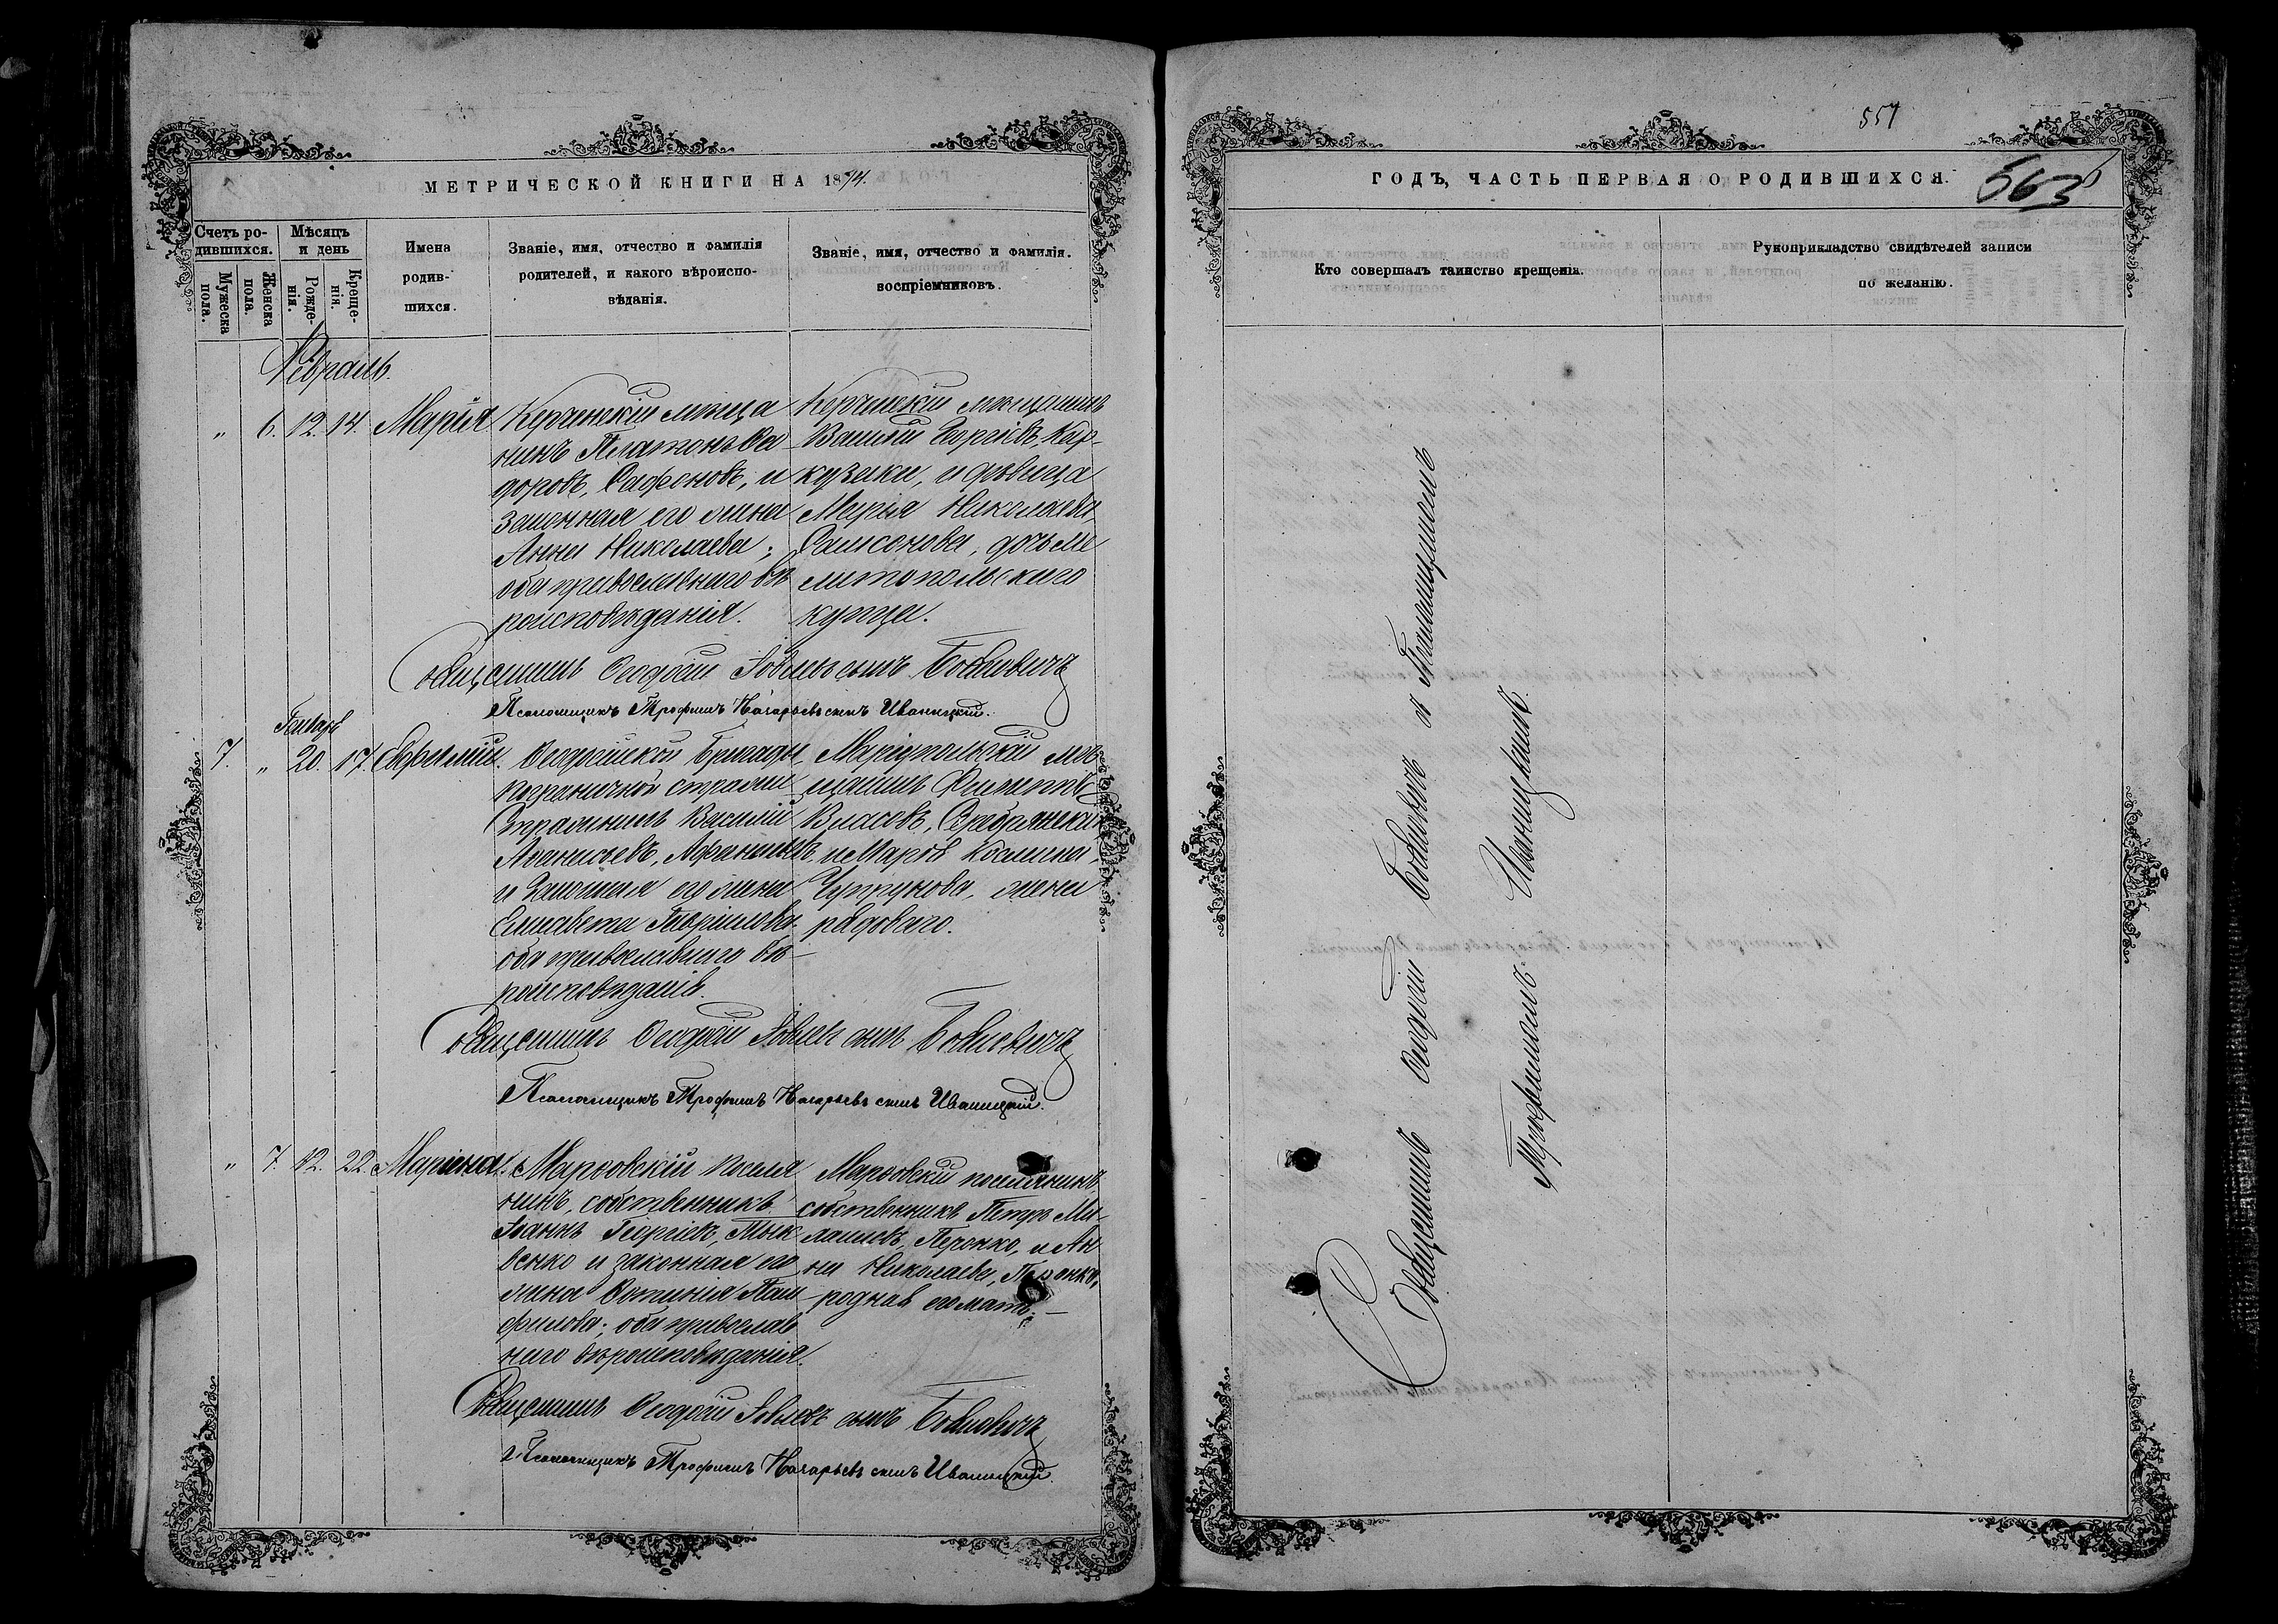 МЕТРИЧЕСКОЙ КНИГИ НА 1874.
Счетъ ро-
дившихся.
Мужеска пола.
Женска пола.
Мѣсяцъ
и день
Рожде-
нія.
Креще-
нія.
Имена
родив-
шихся.
Званіе, имя, отчество и фамилія
родителей, и какого вѣроиспо-
вѣданія.
Званіе, имя, отчество и фамилія.
воспріемниковъ.
Февраль.
" 6. 12. 14. Марія
Керченскій мѣща
нинъ Платонъ Ѳе
доровъ, Сафоновъ, и
законная его жена
Анна Николаева;
оба православнаго вѣ
роисповѣданія.
Керченскій мѣщанинъ
Василій Георгіевъ, Кар-
кузаки, и дѣвица
Марья Николаева,
Самсонова, дочь ме
литопольскаго
купца.
Священникъ Ѳеодосій Іовлевъ сынъ Бовкевичъ
Псаломщикъ Трофимъ Назарьевъ сынъ Иваницкій.
Генварь
7. " 20. 17. Евфимій.
Ѳеодосійской бригады
пограничной стражи
стражникъ Василій
Аѳанасьевъ,
и законная его жена
Елисавета Гавріилова
оба православнаго вѣ-
роисповѣданія.
Маріупольскій мѣ
щанинъ Филиппъ
Власовъ,
и Марѳа Козмина,
Чугунова, жена
рядоваго.
Священникъ Ѳеодосій Іовлевъ сынъ Бовкевичъ
Псаломщикъ Трофимъ Назарьевъ сынъ Иваницкій.
" 7. 12. 22. Маріана.
Марѳовскій поселя
нинъ, собственникъ
Іоаннъ Георгіевъ,
венко и законная его
жена Фотинія Пам
филова; оба православ
наго вѣроисповѣданія.
Марѳовскій поселянинъ
собственникъ Петръ Ми-
хаилевъ, Перонко, и Ан
на Николаева, Перонко,
родная его мать.
Священникъ Ѳеодосій Іовлевъ сынъ Бовкевичъ
Псаломщикъ Трофимъ Назарьевъ сынъ Иваницкій.
557
563
ГОДЪ, ЧАСТЬ ПЕРВАЯ О РОДИВШИХСЯ.
Кто совершалъ таинство крещенія.
Рукоприкладство свидѣтелей записи
по желанію.
Священникъ Ѳеодосій Бовкевичъ и Псаломщикомъ
Трофимомъ Иваницкимъ.